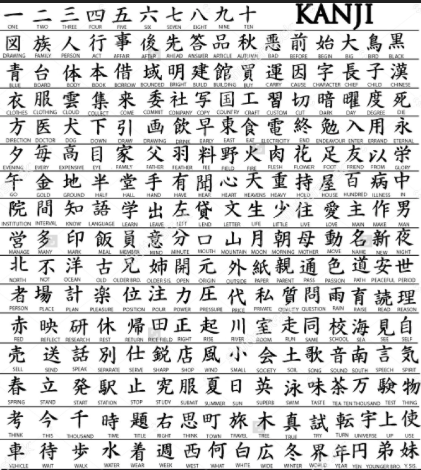 KANJI
一 二 三 四 五 六 七 八 九 十
ONE TWO THREE FOUR FIVE SIX SEVEN EIGHT NINE TEN
図 族 人 行 事 後 先 答 品 秋 悪 前 始 大 鳥 黒
DRAWING FAMILY PERSON ACT AFFAIR AFTER AHEAD ANSWER ARTICLE AUTUMN BAD BEFORE BEGIN BIG BIRD BLACK
青 台 体 本 借 域 明 建 館 買 運 因 字 長 子 漢
BLUE BOARD BODY BOOK BORROW BOUNDED BRIGHT BUILD BUILDING BUY CARRY CAUSE CHARACTER CHEF CHILD CHINESE
衣 服 雲 集 来 委 社 写 国 工 習 切 暗 曜 度 死
CLOTHES CLOTHING CLOUD COLLECT COME COMMIT COMPANY COPY COUNTRY CRAFT CUSTOM CUT DARK DAY DEGREE DIE
方 医 犬 下 引 画 飲 早 東 食 電 終 勉 入 用 永
DIRECTION DOCTOR DOG DOWN DRAW DRAWING DRINK EARLY EAST EAT ELECTRICITY END ENDEAVOUR ENTER ERRAND ETERNAL
夕 毎 高 目 家 父 羽 料 野 火 肉 花 足 友 以
EVENING EVERY EXPENSIVE EYE FAMILY FATHER FEATHER FEE FIELD FIRE FLESH FLOWER FOOT FRIEND FROM
金 地 半 堂 手 有 聞 心 天 重 持 屋 百 病 中
GO GOLD GROUND HALF HALL HAND HAVE HEAR HEART HEAVENS HEAVY HOLD HOUSE HUNDRED ILLNESS IN
院 間 知 語 学 出 左 貸 文 生 少 住 愛 主 作 男
INSTITUTION INTERVAL KNOW LANGUAGE LEARN LEAVE LEFT LEND LETTER LIFE LITTLE LIVE LOVE MAIN MAKE MAN
営 多 印 飯 員 意 分 口 山 月 朝 母 動 名 新 夜
MANAGE MANY MARK MEAL MEMBER MIND MINUTE MOUTH MOUNTAIN MOON MORNING MOTHER MOVE NAME NEW NIGHT
北 不 洋 古 兄 姉 開 元 外 紙 親 通 色 道 安 世
NORTH NOT OCEAN OLD OLDER BRO. OLDER SIS. OPEN ORIGIN OUTSIDE PAPER PARENT PASS PASSION PATH PEACEFUL PERIOD
者 場 計 楽 位 注 力 圧 代 私 質 問 雨 育 読 理
PERSON PLACE PLAN PLEASURE POSITION POUR POWER PRESSURE PRICE PRIVATE QUALITY QUESTION RAIN RAISE READ REASON
赤 映 研 休 帰 田 正 起 川 室 走 同 校 海 見 自
RED REFLECT RESEARCH REST RETURN RICE FIELD RIGHT RISE RIVER ROOM RUN SAME SCHOOL SEA SEE SELF
売 送 話 別 仕 鋭 店 風 小 会 土 歌 音 南 言 気
SELL SEND SPEAK SEPARATE SERVE SHARP SHOP WIND SMALL SOCIETY SOIL SONG SOUND SOUTH SPEECH SPIRIT
春 立 発 駅 止 究 服 夏 日 英 泳 味 茶 万 験 物
SPRING STAND START STATION STOP STUDY SUBMIT SUMMER SUN SUPERB SWIM TASTE TEA TEN THOUSAND TEST THING
考 今 千 時 題 右 思 町 旅 木 真 試 転 宇 上 使
THINK THIS THOUSAND TIME TITLE RIGHT THINK TOWN TRAVEL TREE TRUE TRY TURN UNIVERSE UP USE
車 待 歩 水 着 週 西 何 白 広 冬 界 年 円 弟 妹
VEHICLE WAIT WALK WATER WEAR WEEK WEST WHAT WHITE WIDE WINTER WORLD YEAR YEN YOUNGER BRO. Y.SIS.